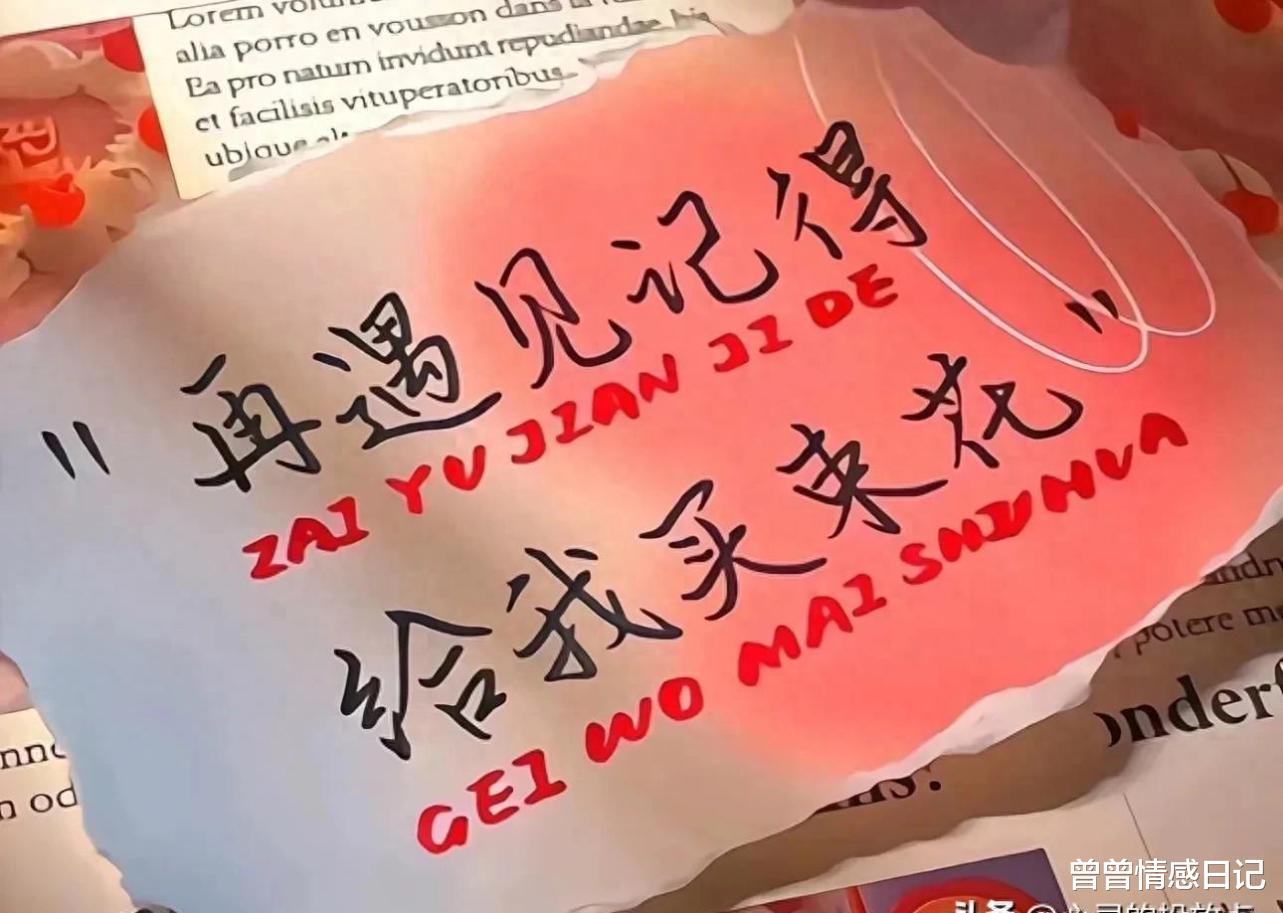 Lorem
alia porro en vousson dans la
Ea pro natum invidunt repudiandae his
et facilisis vituperatoribus
ubique
"再遇见记得
ZAI YU JIAN JI DE
给我买束花"
GEI WO MAI SHU HUA
potere
onderf
n od
曾曾情感日记
头条